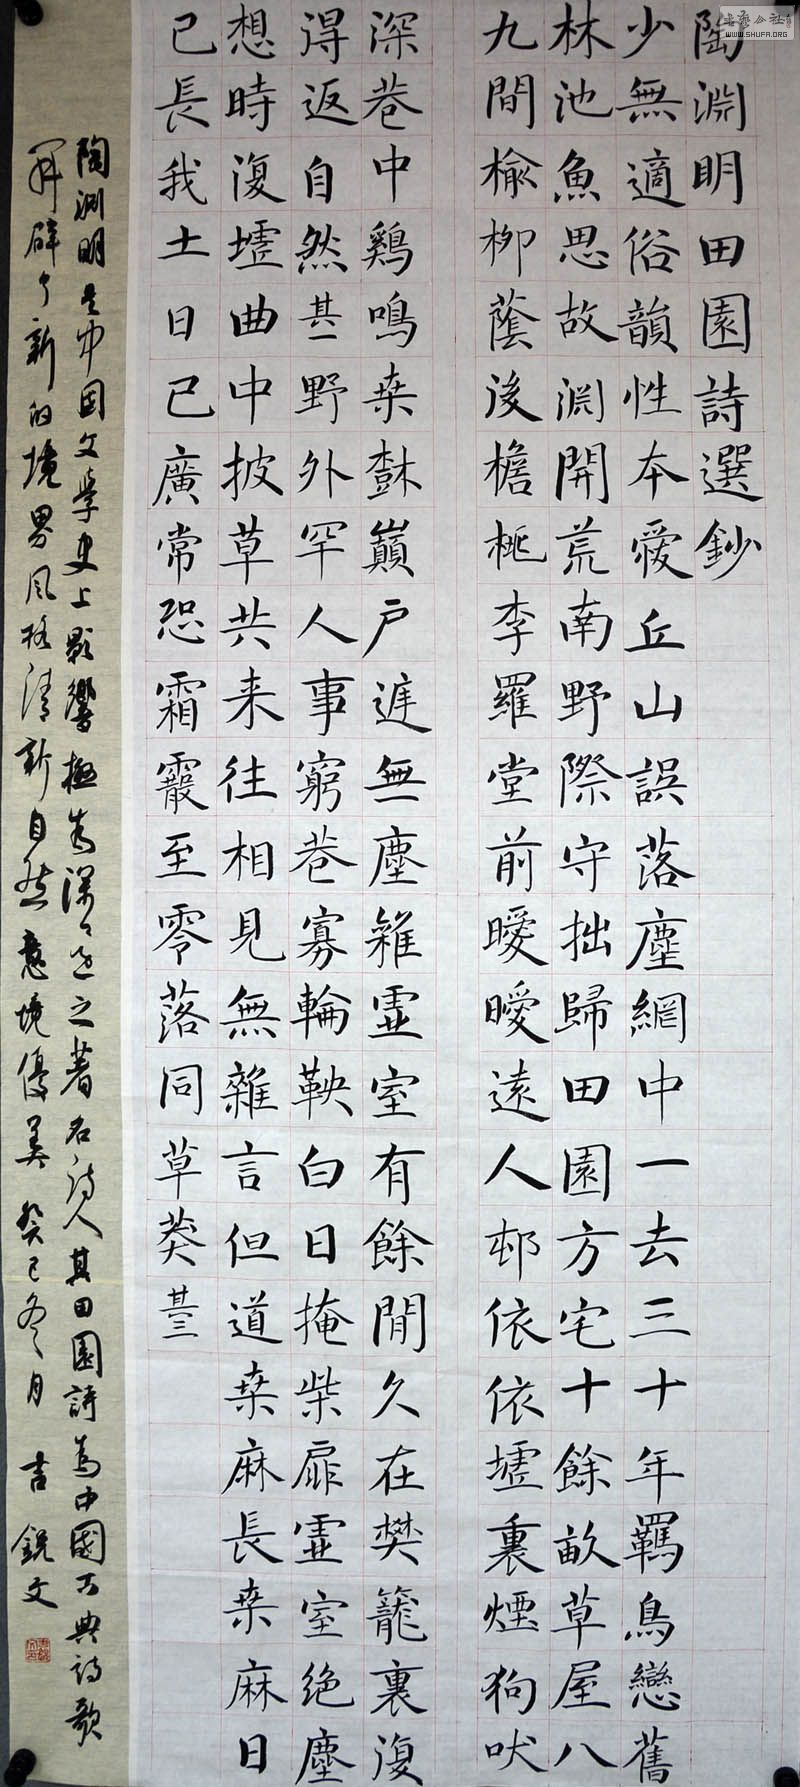 陶淵明田園詩選鈔
少無適俗韻性本愛丘山誤落塵網中一去三十年羈鳥戀舊
林池魚思故淵開荒南野際守拙歸田園方宅十餘畝草屋八
九間榆柳蔭後檐桃李羅堂前曖曖遠人邨依依墟裏煙狗吠
深巷中鷄鳴桒樹巔戶庭無塵雜虛室有餘閒久在樊籠裏復
得返自然其一野外罕人事窮巷寡輪鞅白日掩柴扉虛室絕塵
想時復墟曲中披草共来往相見無雜言但道桒麻長桒麻日
已長我土日已廣常恐霜霰至零落同草莽其三
陶淵明是中国文學史上影響極為深遠之著名詩人其田園詩為中國古典詩歌
開辟了新的境界風格清新自然意境優美 癸巳冬月 吉銳文
书艺公社
WWW.SHUFA.ORG